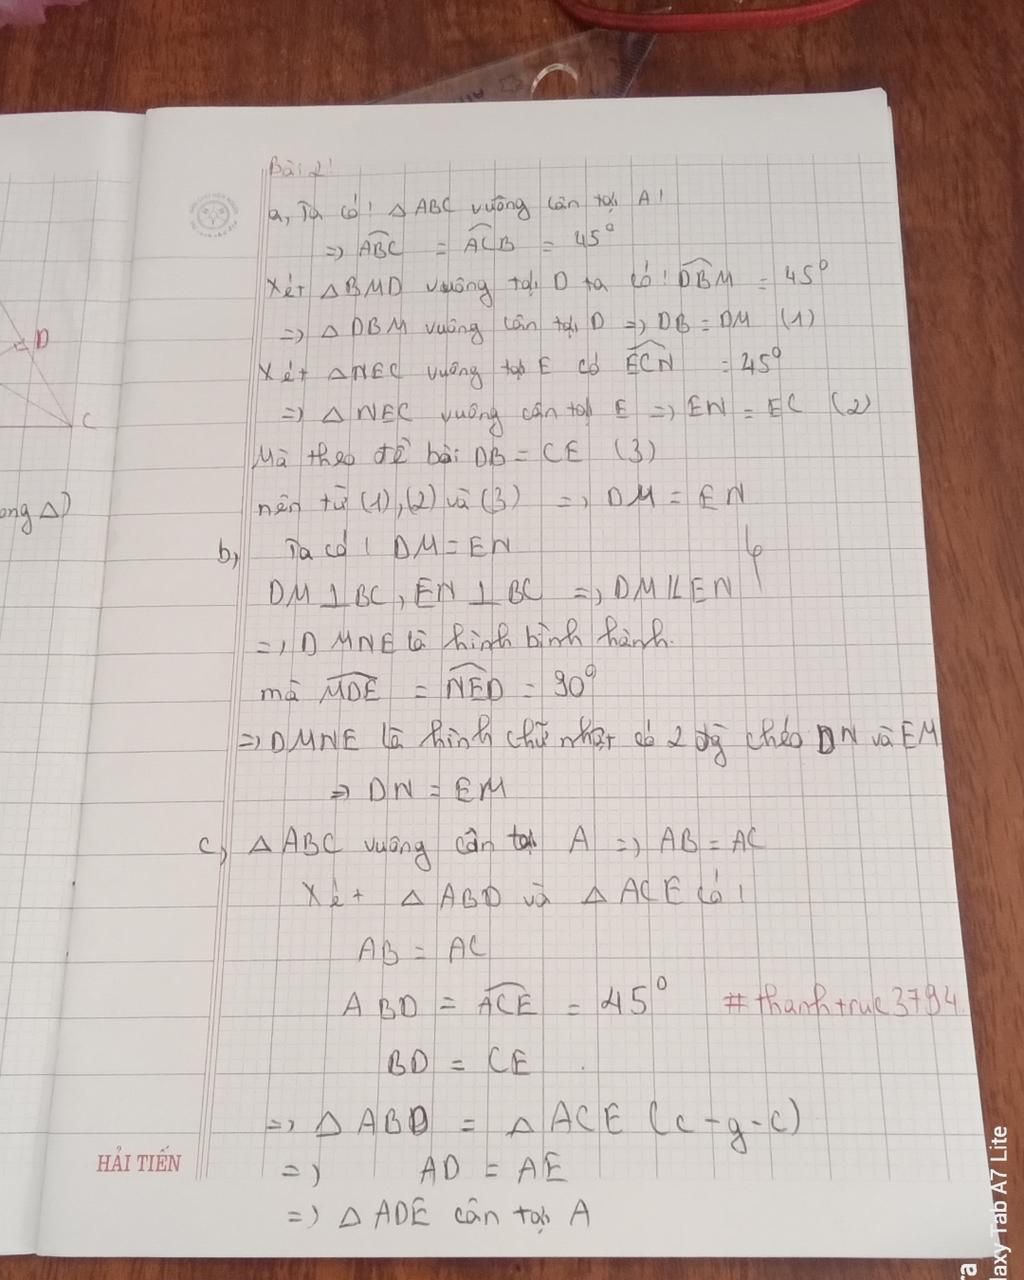 Bài 2:
a, Ta có: △ ABC vuông cân tại A:
=> ABC = ACB = 45°
Xét △BMD vuông tại D ta có: DBM = 45°
=> △ DBM vuông cân tại D => DB = DM (1)
Xét △NEC vuông tại E có ECN = 45°
=> △ NEC vuông cân tại E => EN = EC (2)
Mà theo đề bài DB = CE (3)
nên từ (1), (2) và (3) => DM = EN
b, Ta có: DM = EN
DM ⊥ BC, EN ⊥ BC => DM // EN
=> DMNE là hình bình hành.
mà MDE = NED = 90°
=> DMNE là hình chữ nhật có 2 đg chéo DN và EM
=> DN = EM
c, △ ABC vuông cân tại A => AB = AC
Xét △ ABD và △ ACE có:
AB = AC
ABD = ACE = 45°
#thanhtruc3794
BD = CE
=> △ ABD = △ ACE (c-g-c)
=> AD = AE
=> △ ADE cân tại A
HẢI TIẾN
D
C
ong △)
laxy Tab A7 Lite